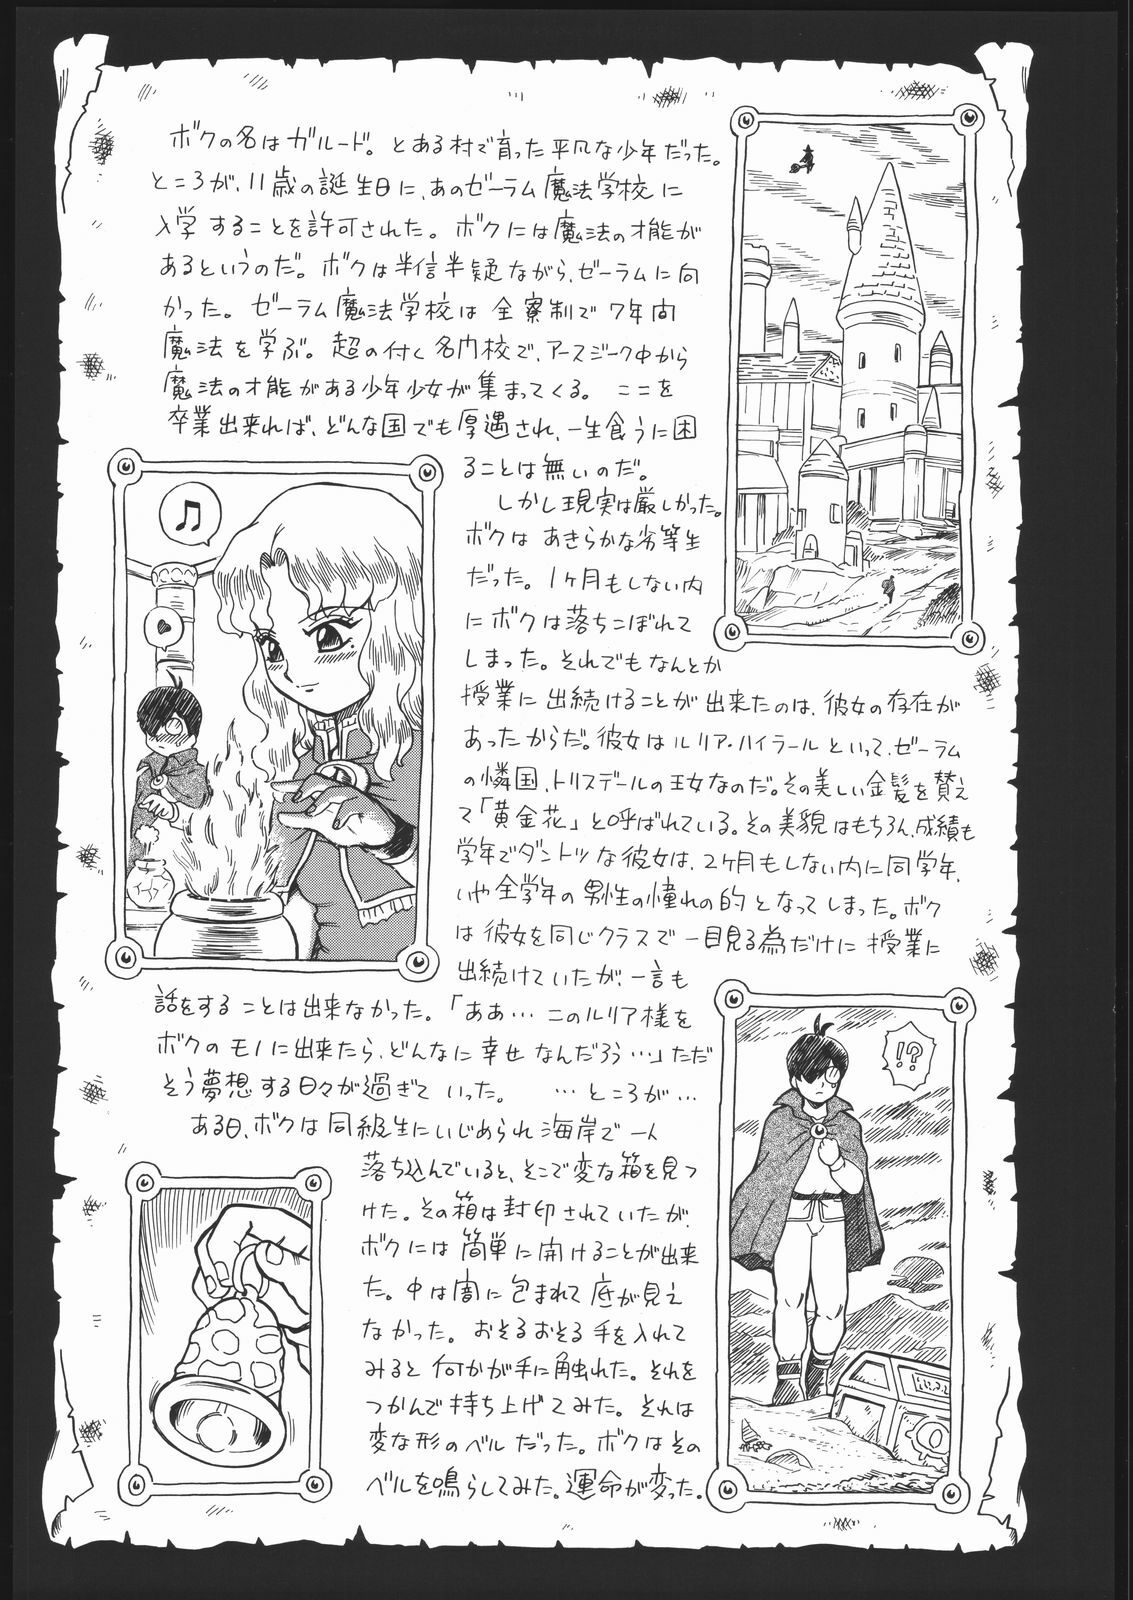 ボクの名はガルード。とある村で育った平凡な少年だった。
ところが、11歳の誕生日に、あのゼーラム魔法学校に
入学することを許可された。ボクには魔法の才能が
あるというのだ。ボクは半信半疑ながら、ゼーラムに向
かった。ゼーラム魔法学校は全寮制で7年間
魔法を学ぶ。超の付く名門校で、アースジーク中から
魔法の才能がある少年少女が集まってくる。ここを
卒業出来れば、どんな国でも厚遇され、一生食うに困
ることは無いのだ。
しかし現実は厳しかった。
ボクはあきらかな劣等生
だった。1ヶ月もしない内
にボクは落ちこぼれて
しまった。それでもなんとか
授業に出続けることが出来たのは、彼女の存在が
あったからだ。彼女はルリア・ハイラールといって、ゼーラム
の隣国、トリスデールの王女なのだ。その美しい金髪を賛え
て「黄金花」と呼ばれている。その美貌はもちろん、成績も
学年でダントツな彼女は、2ヶ月もしない内に同学年、
いや全学年の男性の憧れの的となってしまった。ボク
は彼女を同じクラスで一目見る為だけに授業に
出続けていたが、一言も
話をすることは出来なかった。「ああ…このルリア様を
ボクのモノに出来たら、どんなに幸せなんだろう…」ただ
そう夢想する日々が過ぎていった。 …ところが…
ある日、ボクは同級生にいじめられ海岸で一人
落ち込んでいると、そこで変な箱を見つ
けた。その箱は封印されていたが、
ボクには簡単に開けることが出来
た。中は闇に包まれて底が見え
なかった。おそるおそる手を入れて
みると何かが手に触れた。それを
つかんで持ち上げてみた。それは
変な形のベルだった。ボクはその
ベルを鳴らしてみた。運命が変った。
!?